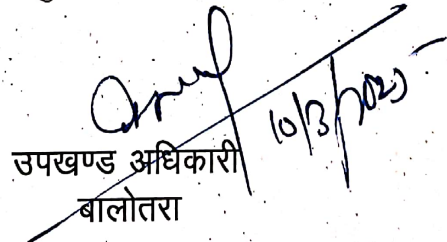 10/3/2025
उपखण्ड अधिकारी
बालोतरा